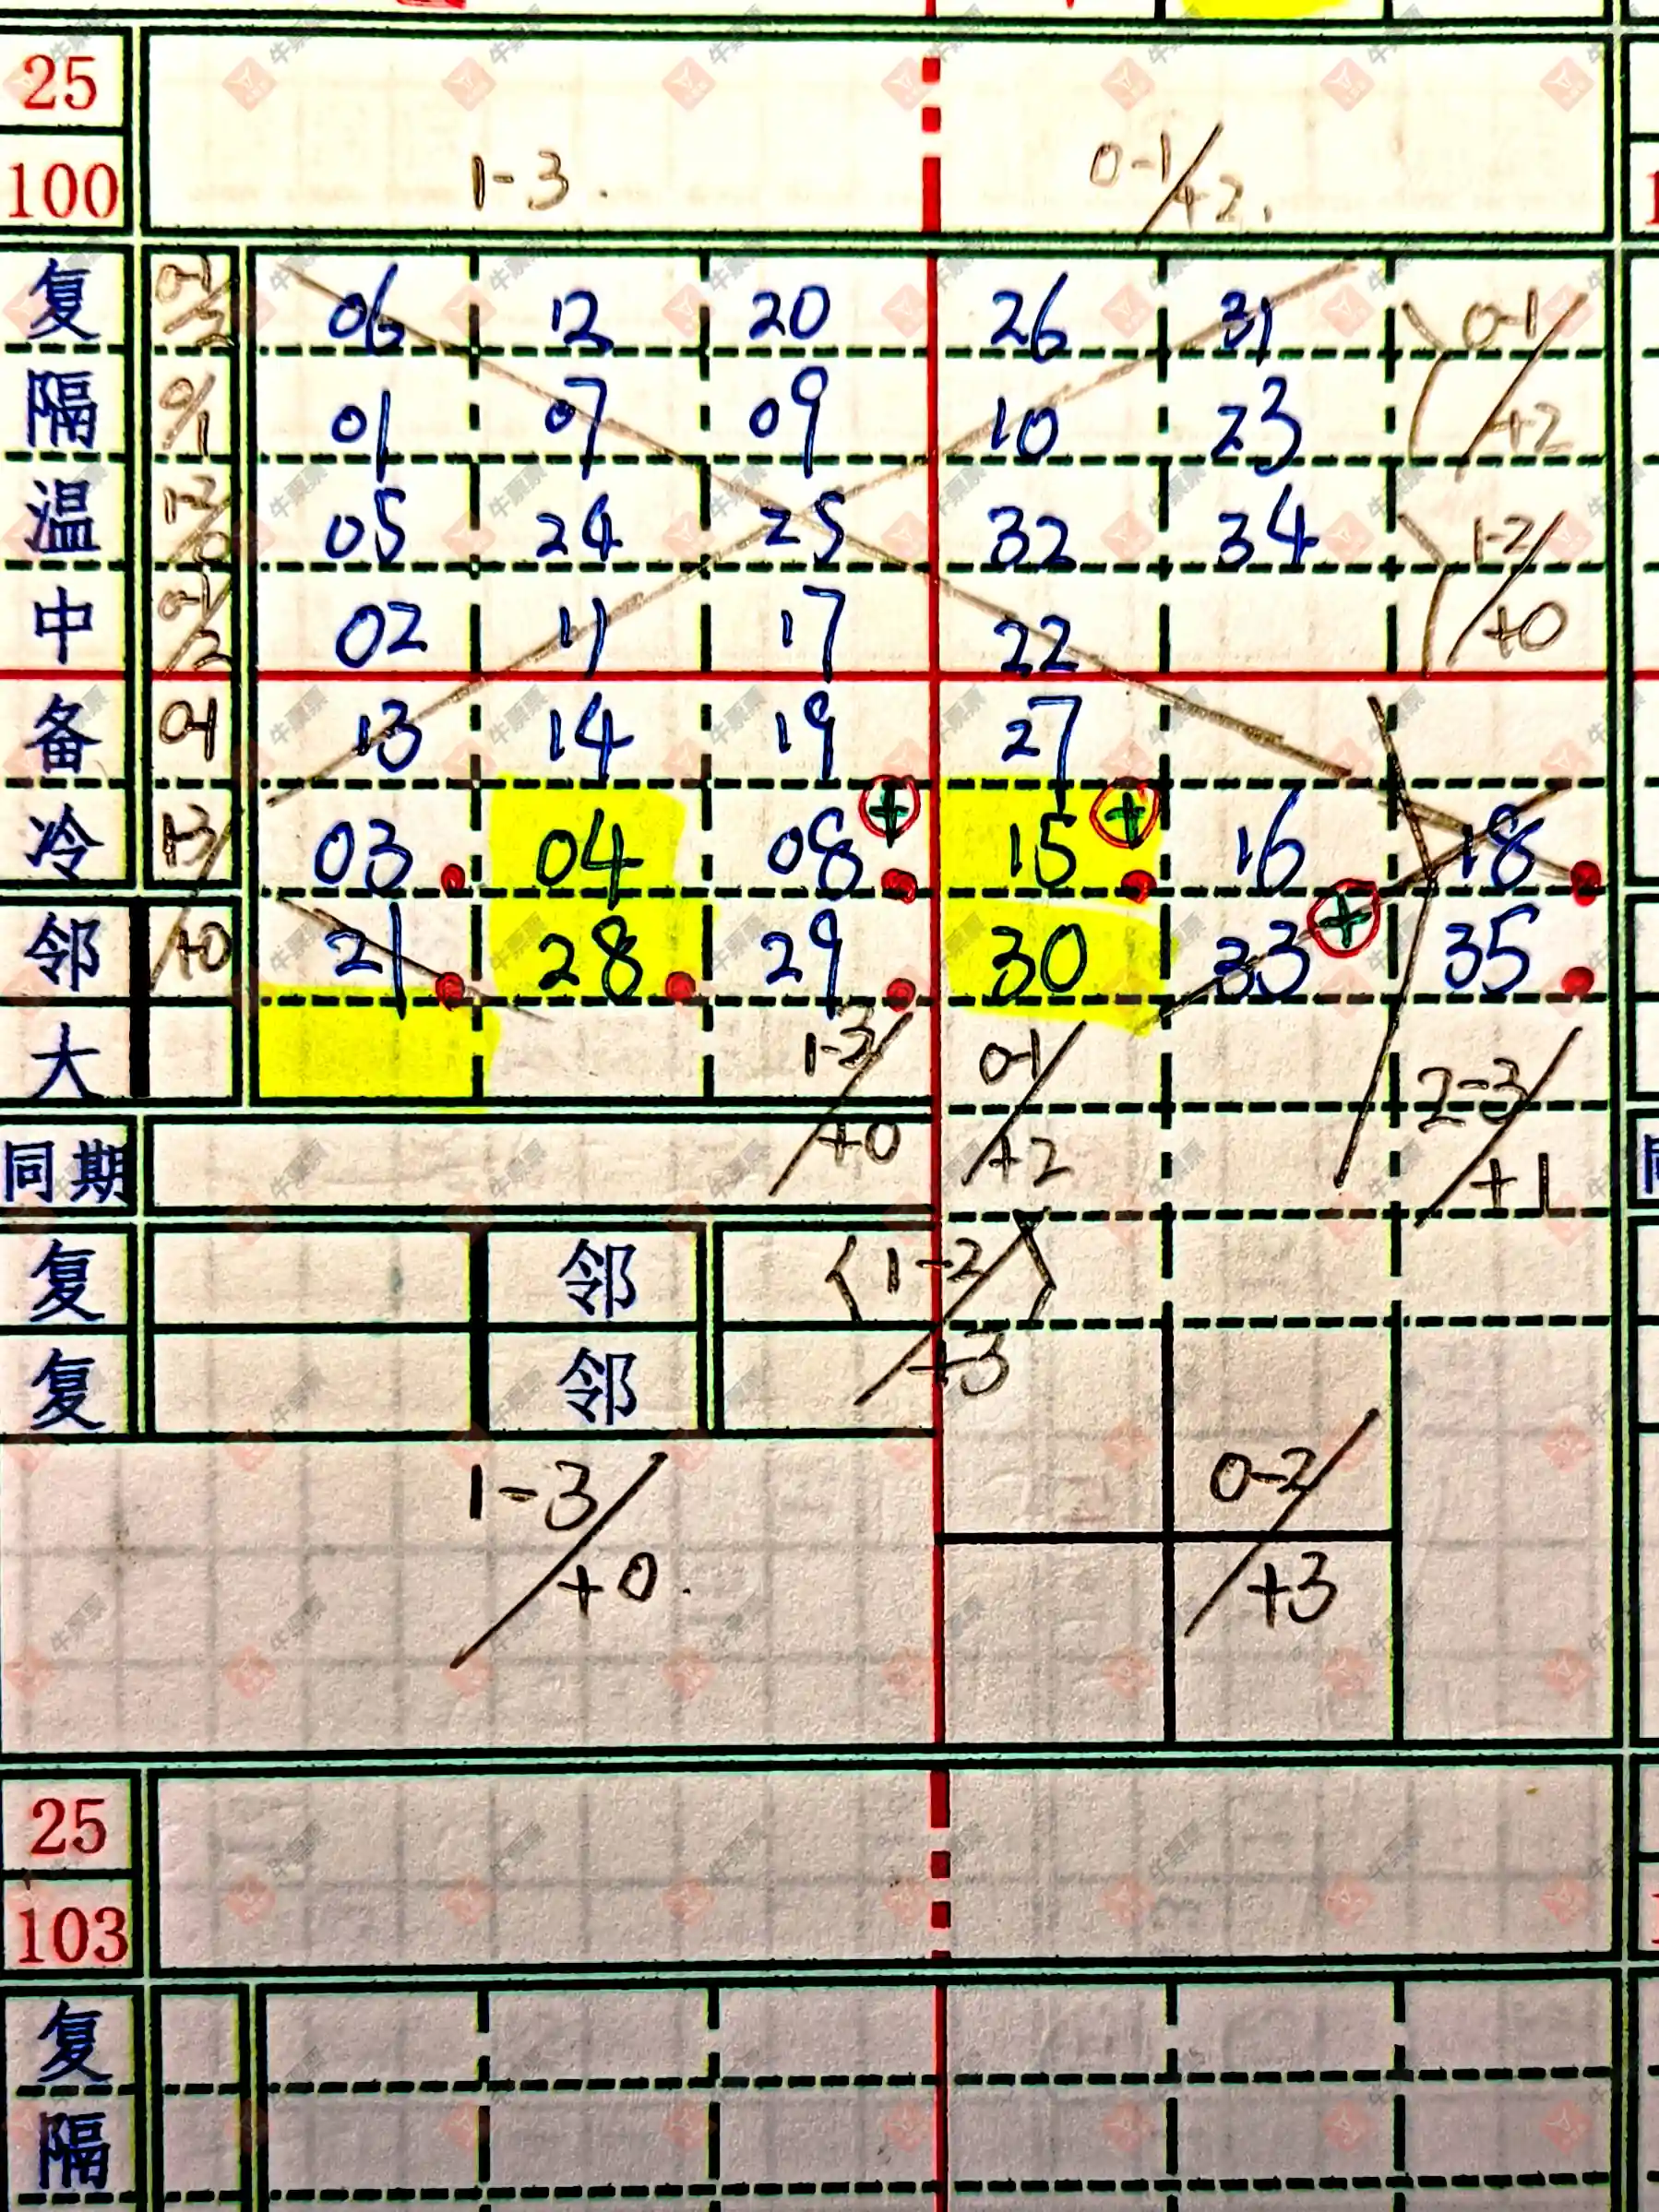 25
1-3. 0-1/+2.
100
复 0-1/2 06 12 20 26 31 0-1/+2
隔 0/1 01 07 09 10 23
温 1-2/0 05 24 25 32 34 1-2/+0
中 0-1/2 02 11 17 22
备 0-1 13 14 19 27
冷 1-3/+0 03 04 08 + 15 + 16 18
邻 21 28 29 30 33 + 35
大 1-3/+0 0-1/+2 2-3/+1
同期
复 邻 〈1-2/+3〉
复 邻
1-3/+0. 0-2/+3
25
103
复
隔
牛票票